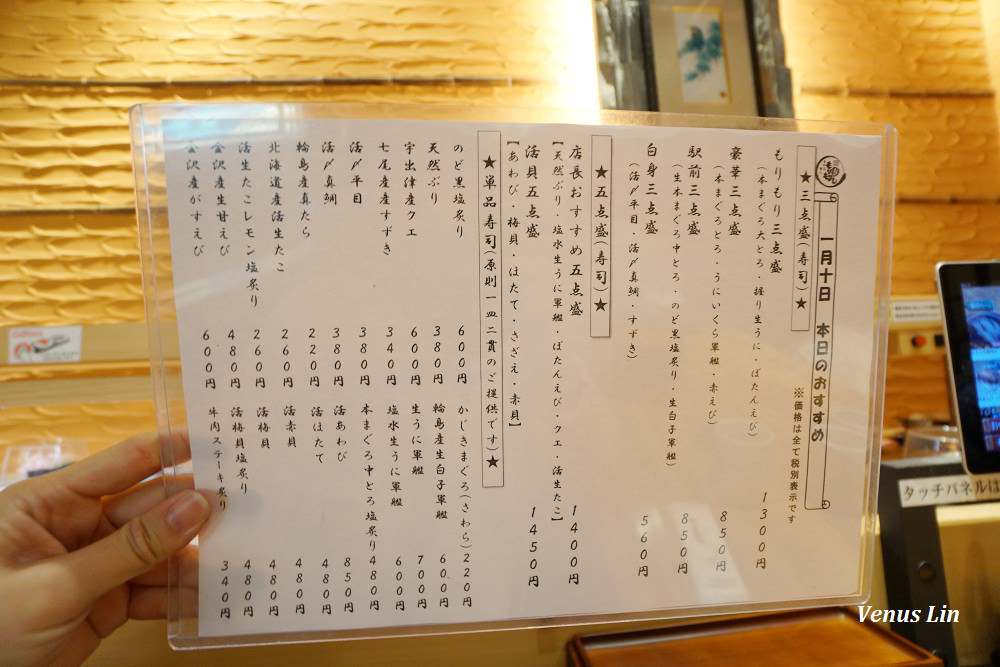 一月十日 本日のおすすめ
※価格は全て税別表示です
★三点盛(寿司)★
もりもり三点盛 1300円
(本まぐろ大とろ・握り生うに・ぼたんえび)
豪華三点盛 850円
(本まぐろとろ・うにいくら軍艦・赤えび)
駅前三点盛 850円
(生本まぐろ中とろ・のど黒塩炙り・生白子軍艦)
白身三点盛 560円
(活〆平目・活〆真鯛・すずき)
★五点盛(寿司)★
店長おすすめ五点盛 1400円
【天然ぶり・塩水生うに軍艦・ぼたんえび・クエ・活生たこ】
活貝五点盛 1450円
【あわび・梅貝・ほたて・さざえ・赤貝】
★単品寿司(原則一皿二貫のご提供です)★
のど黒塩炙り 600円
天然ぶり 380円
宇出津産クエ 600円
七尾産産すずき 340円
活〆平目 380円
活〆真鯛 380円
輪島産真たら 220円
北海道産活生たこ 260円
活生たこレモン塩炙り 260円
金沢産生甘えび 480円
金沢産がすえび 600円
かじきまぐろ(さわら) 220円
輪島産生白子軍艦 600円
生うに軍艦 700円
塩水生うに軍艦 600円
本まぐろ中とろ塩炙り 480円
活あわび 850円
活ほたて 480円
活赤貝 480円
活梅貝 480円
活梅貝塩炙り 480円
牛肉ステーキ炙り 340円
タッチパネルは
Venus Lin